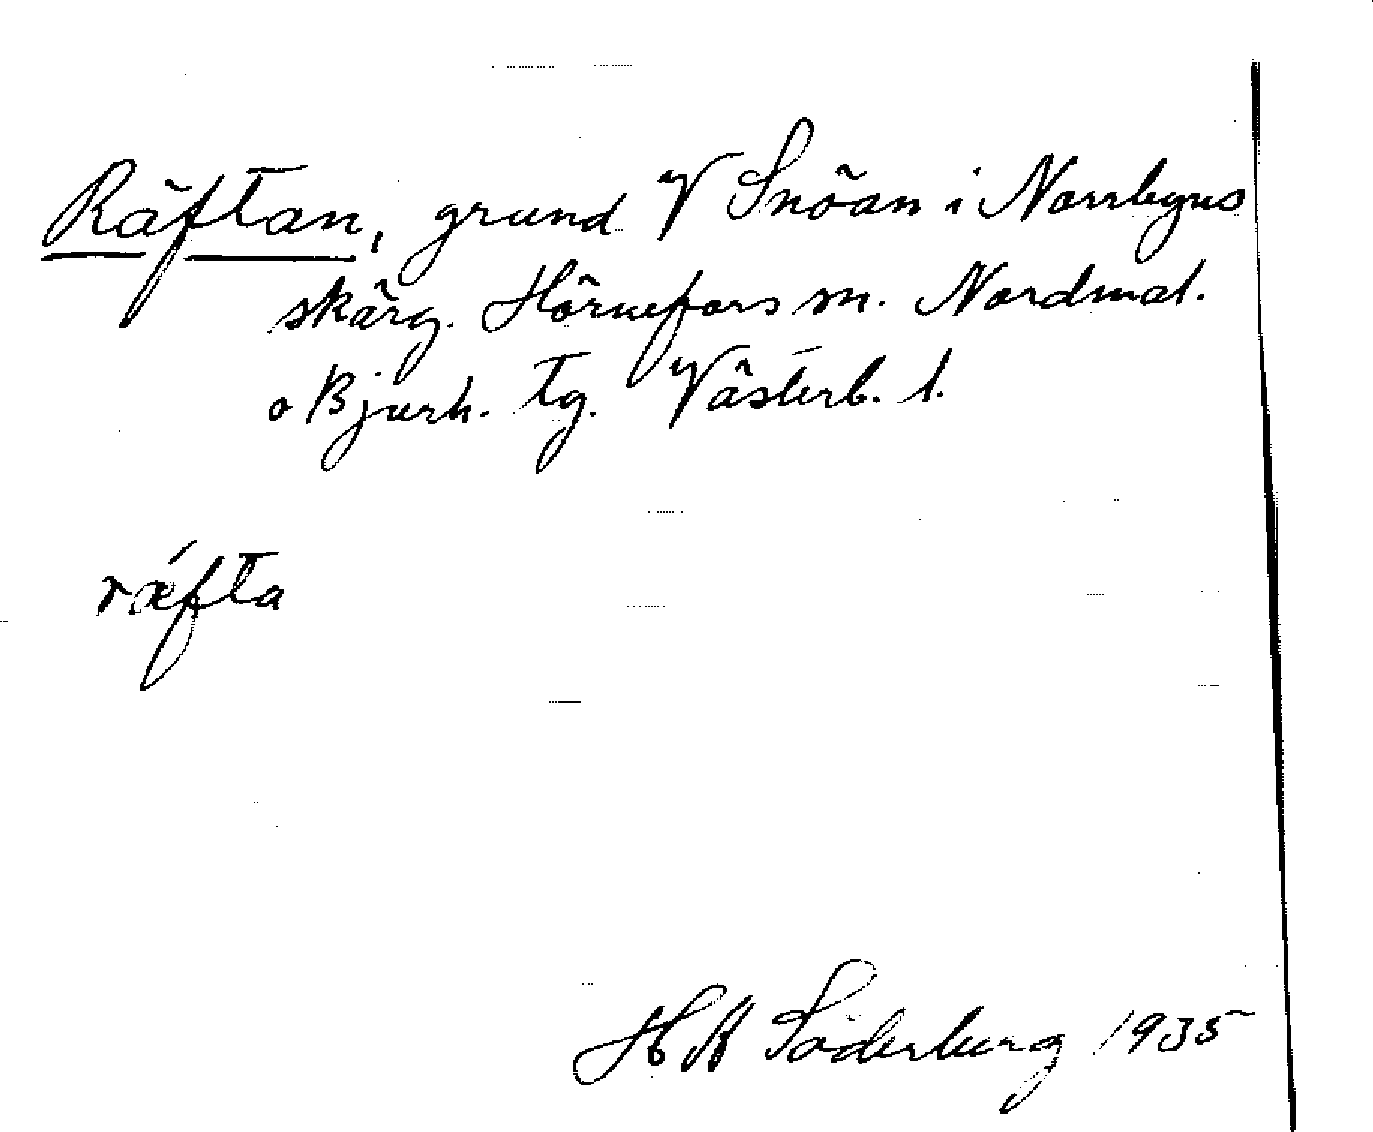 Räftan, grund V Snöan i Norrbyns
skärg. Hörnefors sn. Nordmal.
o Bjurh. tg. Västerb. l.
rǽfta
H A Söderberg 1935